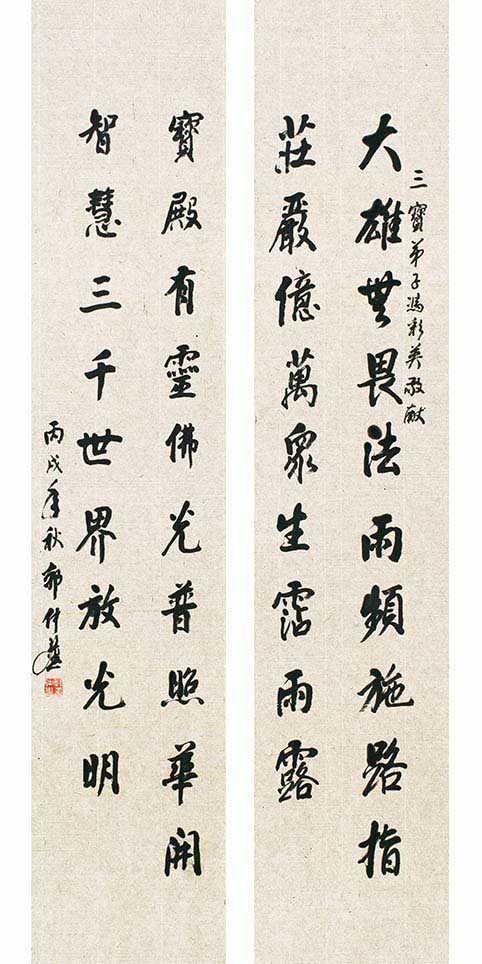 三寶弟子馮彩英敬献
大雄無畏法雨頻施路指
莊嚴億萬衆生霑雨露
寶殿有靈佛光普照華開
智慧三千世界放光明
丙戌年秋郭仕